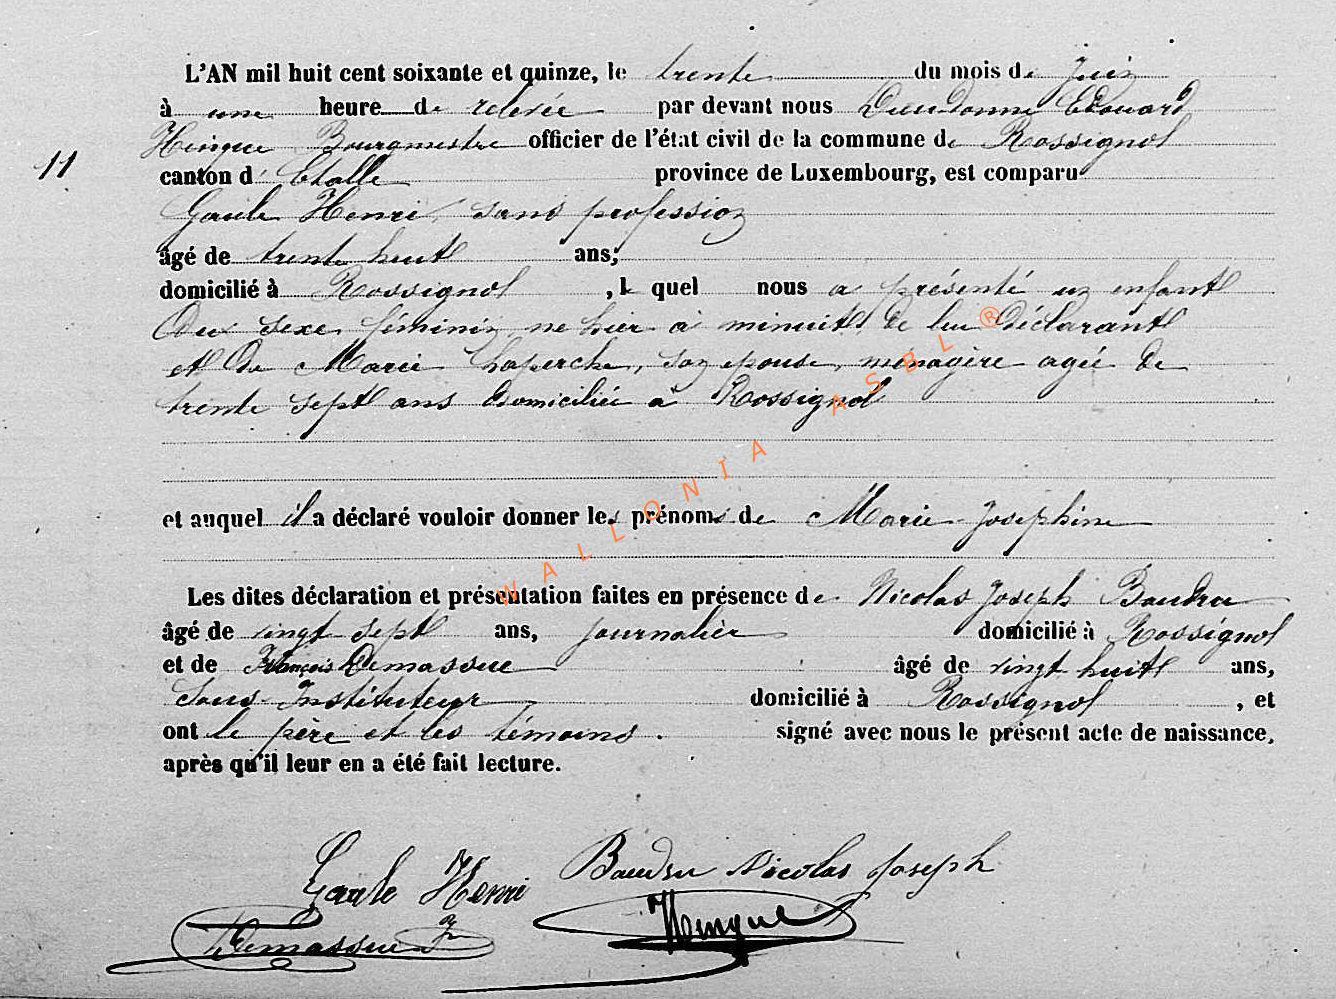 L'AN mil huit cent soixante et quinze, le trente du mois de Juin
à une heure de relevée par devant nous Dieudonné Edouard
Hinque Bourgmestre officier de l'état civil de la commune de Rossignol
11
canton d' Etalle province de Luxembourg, est comparu
Gaule Henri, sans profession
âgé de trente huit ans;
domicilié à Rossignol, lequel nous a présenté un enfant
du sexe féminin, né hier à minuit, de lui déclarant
et de Marie Laperche, son épouse, ménagère agée de
trente sept ans domiciliée à Rossignol
et auquel il a déclaré vouloir donner les prénoms de Marie-Joséphine
Les dites déclaration et présentation faites en présence de Nicolas Joseph Baudru
âgé de vingt sept ans, journalier domicilié à Rossignol
et de François Demassue âgé de vingt huit ans,
Sous-Instituteur domicilié à Rossignol, et
ont le père et les témoins. signé avec nous le présent acte de naissance,
après qu'il leur en a été fait lecture.
Gaule Henri Baudru Nicolas Joseph
Demassue F Hinque
WALLONIA ASBL ®